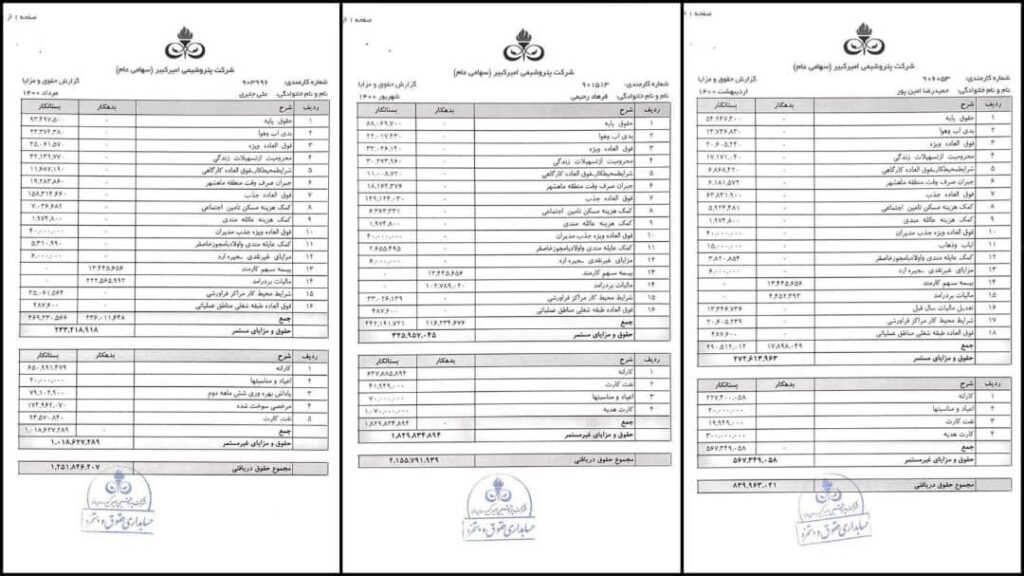 صفحه ۱ از
شرکت پتروشیمی امیرکبیر (سهامی عام)
شماره کارمندی: ۹۰۶۰۵۳ گزارش حقوق و مزایا
نام و نام خانوادگی: حمیدرضا امین پور اردیبهشت ۱۴۰۰
ردیف شرح بدهکار بستانکار
۱ حقوق پایه ۰ ۵۴,۹۴۷,۲۰۰
۲ بدی آب وهوا ۰ ۱۳,۷۳۶,۸۳۰
۳ فوق العاده ویژه ۰ ۲۰,۶۰۵,۲۴۰
۴ محرومیت ازتسهیلات زندگی ۰ ۱۷,۱۷۱,۰۴۰
۵ شرایطمحیطکار_فوق العاده کارگاهی ۰ ۶,۸۶۸,۴۲۰
۶ جبران صرف وقت منطقه ماهشهر ۰ ۶,۱۸۱,۵۷۴
۷ فوق العاده جذب ۰ ۶۳,۸۴۱,۹۰۰
۸ کمک هزینه مسکن تامین اجتماعی ۰ ۵,۹۲۴,۴۸۱
۹ کمک هزینه عائله مندی ۰ ۱,۹۷۴,۸۰۰
۱۰ فوق العاده ویژه جذب مدیران ۰ ۴۰,۰۰۰,۰۰۰
۱۱ ایاب وذهاب ۰ ۱۵,۰۰۰,۰۰۰
۱۲ کمک عایله مندی واولادبامجوزخاصقر ۰ ۳,۸۲۰,۸۵۴
۱۳ مزایای غیرنقدی _جیره ارد ۰ ۶,۰۰۰,۰۰۰
۱۴ بیمه سهم کارمند ۱۳,۴۴۵,۶۵۶ ۰
۱۵ مالیات بردرامد ۴,۴۵۲,۳۹۳ ۰
۱۶ تعدیل مالیات سال قبل ۰ ۱۳,۳۴۶,۷۳۶
۱۷ شرایط محیط کار مراکز فراورشی ۰ ۲۰,۶۰۵,۲۳۹
۱۸ فوق العاده طبقه شغلی مناطق عملیاتی ۰ ۴۸۷,۶۰۰
جمع ۱۷,۸۹۸,۰۴۹ ۲۹۰,۵۱۲,۰۱۲
حقوق و مزایای مستمر ۲۷۲,۶۱۳,۹۶۳
ردیف شرح بدهکار بستانکار
۱ کارانه ۲۲۷,۴۰۰,۰۵۸
۲ اعیاد و مناسبتها ۲۰,۰۰۰,۰۰۰
۳ نفت کارت ۱۹,۹۴۹,۰۰۰
۴ کارت هدیه ۳۰۰,۰۰۰,۰۰۰
جمع ۰ ۵۶۷,۳۴۹,۰۵۸
حقوق و مزایای غیرمستمر ۵۶۷,۳۴۹,۰۵۸
مجموع حقوق دریافتی ۸۳۹,۹۶۳,۰۲۱
حسابداری حقوق و دستمزد
صفحه ۱ از
شرکت پتروشیمی امیرکبیر (سهامی عام)
شماره کارمندی: ۹۰۱۵۱۳ گزارش حقوق و مزایا
نام و نام خانوادگی: فرهاد رحیمی شهریور ۱۴۰۰
ردیف شرح بدهکار بستانکار
۱ حقوق پایه ۰ ۸۸,۰۶۹,۷۰۰
۲ بدی آب وهوا ۰ ۲۲,۰۱۷,۴۳۰
۳ فوق العاده ویژه ۰ ۳۳,۰۲۶,۱۴۰
۴ محرومیت ازتسهیلات زندگی ۰ ۳۰,۲۷۳,۹۶۰
۵ شرایطمحیطکار_فوق العاده کارگاهی ۰ ۱۱,۰۰۸,۷۲۰
۶ جبران صرف وقت منطقه ماهشهر ۰ ۱۸,۱۶۴,۳۷۶
۷ فوق العاده جذب ۰ ۱۴۹,۱۲۴,۰۳۰
۸ کمک هزینه مسکن تامین اجتماعی ۰ ۶,۳۶۳,۲۳۱
۹ کمک هزینه عائله مندی ۰ ۱,۹۷۴,۸۰۰
۱۰ فوق العاده ویژه جذب مدیران ۰ ۴۰,۰۰۰,۰۰۰
۱۱ کمک عایله مندی واولادبامجوزخاصقر ۰ ۲,۶۵۵,۴۹۵
۱۲ مزایای غیرنقدی _جیره ارد ۰ ۶,۰۰۰,۰۰۰
۱۳ بیمه سهم کارمند ۱۳,۴۴۵,۶۵۶ ۰
۱۴ مالیات بردرامد ۱۰۲,۷۸۹,۰۲۰ ۰
۱۵ شرایط محیط کار مراکز فراورشی ۰ ۳۳,۰۲۶,۱۳۹
۱۶ فوق العاده طبقه شغلی مناطق عملیاتی ۰ ۴۸۷,۶۰۰
جمع ۱۱۶,۲۳۴,۶۷۶ ۴۴۲,۱۹۱,۷۲۱
حقوق و مزایای مستمر ۳۲۵,۹۵۷,۰۴۵
ردیف شرح بدهکار بستانکار
۱ کارانه ۶۴۷,۸۸۵,۸۹۴
۲ نفت کارت ۴۱,۹۴۹,۰۰۰
۳ اعیاد و مناسبتها ۷۰,۰۰۰,۰۰۰
۴ کارت هدیه ۱,۰۷۰,۰۰۰,۰۰۰
جمع ۰ ۱,۸۲۹,۸۳۴,۸۹۴
حقوق و مزایای غیرمستمر ۱,۸۲۹,۸۳۴,۸۹۴
مجموع حقوق دریافتی ۲,۱۵۵,۷۹۱,۹۳۹
حسابداری حقوق و دستمزد
صفحه ۱ از
شرکت پتروشیمی امیرکبیر (سهامی عام)
شماره کارمندی: ۹۰۳۹۹۶ گزارش حقوق و مزایا
نام و نام خانوادگی: علی جابری مرداد ۱۴۰۰
ردیف شرح بدهکار بستانکار
۱ حقوق پایه ۰ ۹۳,۴۹۷,۵۰۰
۲ بدی آب وهوا ۰ ۲۳,۳۷۴,۳۸۰
۳ فوق العاده ویژه ۰ ۳۵,۰۶۱,۵۷۰
۴ محرومیت ازتسهیلات زندگی ۰ ۳۲,۱۳۹,۷۷۰
۵ شرایطمحیطکار_فوق العاده کارگاهی ۰ ۱۱,۶۸۷,۱۹۰
۶ جبران صرف وقت منطقه ماهشهر ۰ ۱۹,۲۸۳,۸۶۰
۷ فوق العاده جذب ۰ ۱۵۸,۳۱۴,۶۶۰
۸ کمک هزینه مسکن تامین اجتماعی ۰ ۷,۰۳۶,۶۸۲
۹ کمک هزینه عائله مندی ۰ ۱,۹۷۴,۸۰۰
۱۰ فوق العاده ویژه جذب مدیران ۰ ۴۰,۰۰۰,۰۰۰
۱۱ کمک عایله مندی واولادبامجوزخاصقر ۰ ۵,۳۱۰,۹۹۰
۱۲ مزایای غیرنقدی _جیره ارد ۰ ۶,۰۰۰,۰۰۰
۱۳ بیمه سهم کارمند ۱۳,۴۴۵,۶۵۶ ۰
۱۴ مالیات بردرامد ۲۲۲,۵۶۵,۹۹۲ ۰
۱۵ شرایط محیط کار مراکز فراورشی ۰ ۳۵,۰۶۱,۵۶۴
۱۶ فوق العاده طبقه شغلی مناطق عملیاتی ۰ ۴۸۷,۶۰۰
جمع ۲۳۶,۰۱۱,۶۴۸ ۴۶۹,۲۳۰,۵۶۶
حقوق و مزایای مستمر ۲۳۳,۲۱۸,۹۱۸
ردیف شرح بدهکار بستانکار
۱ کارانه ۶۵۰,۹۹۱,۴۷۹
۲ اعیاد و مناسبتها ۲۰,۰۰۰,۰۰۰
۳ پاداش بهره وری شش ماهه دوم ۷۹,۱۰۲,۹۰۰
۴ مرخصی سوخت شده ۱۷۴,۹۶۲,۰۷۰
۵ نفت کارت ۹۳,۵۷۰,۸۴۰
جمع ۰ ۱,۰۱۸,۶۲۷,۲۸۹
حقوق و مزایای غیرمستمر ۱,۰۱۸,۶۲۷,۲۸۹
مجموع حقوق دریافتی ۱,۲۵۱,۸۴۶,۲۰۷
حسابداری حقوق و دستمزد